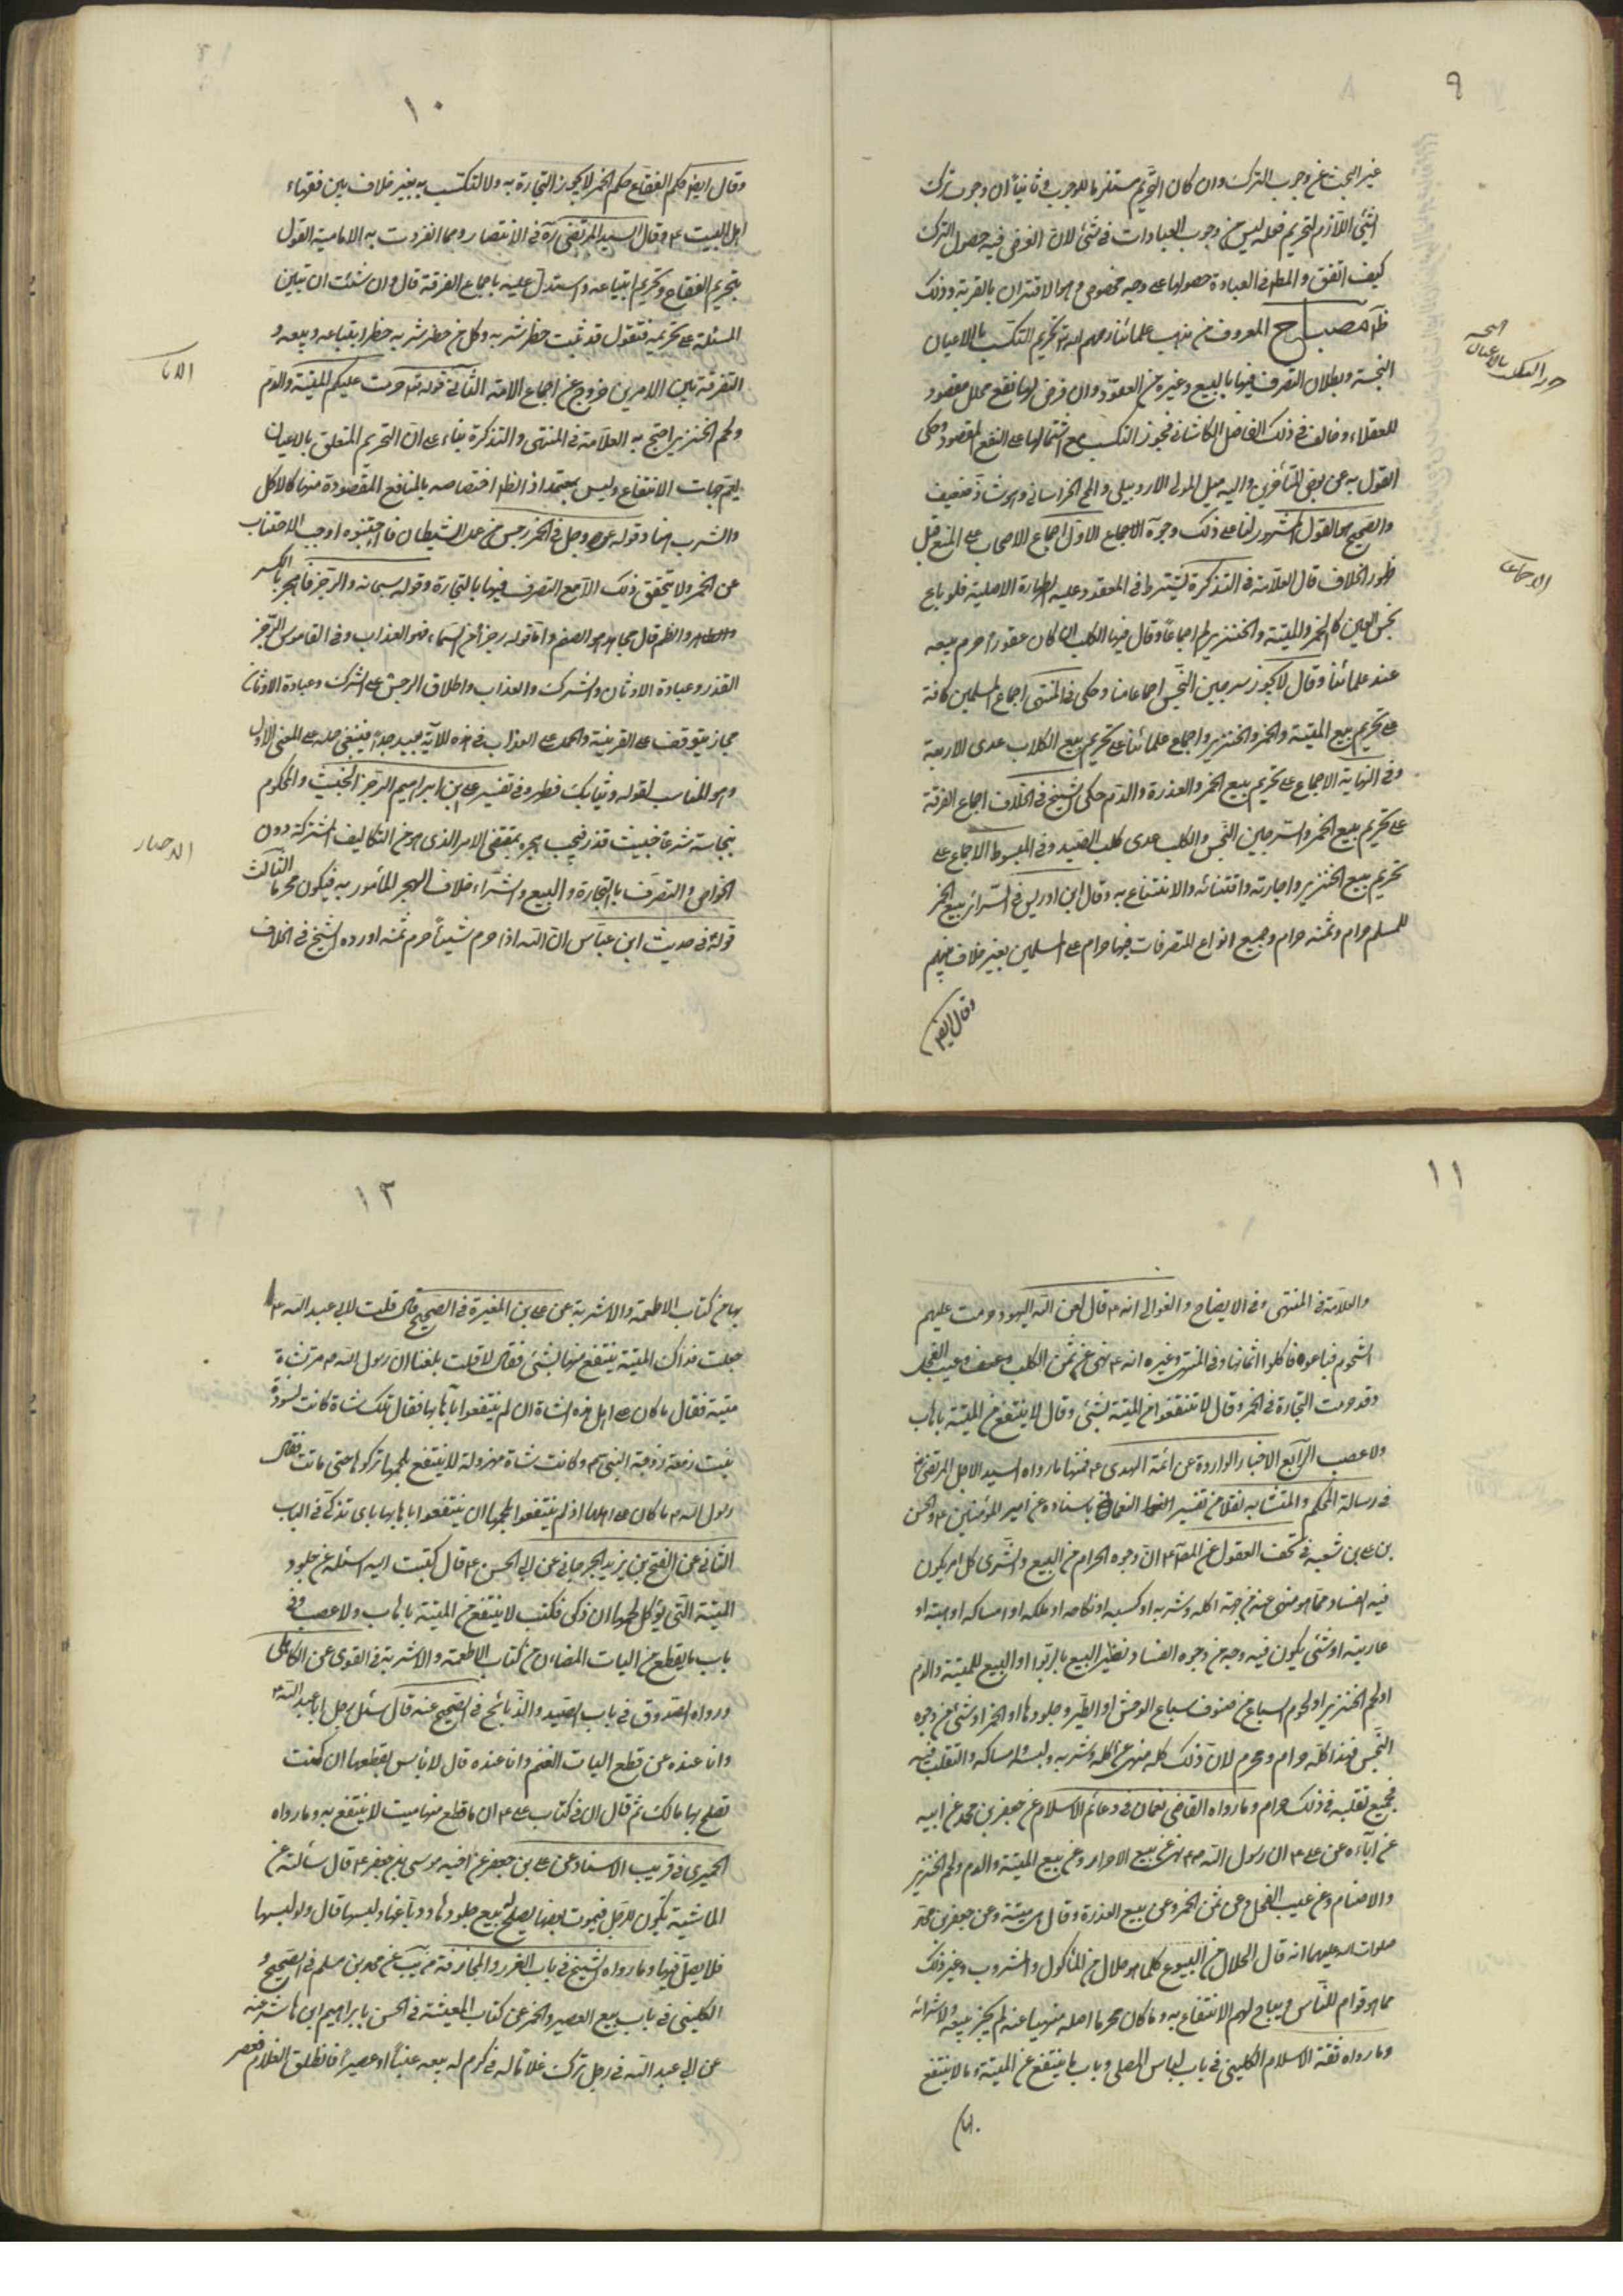 ٩
غير البحث عن وجوب الترك وان كان التحريم مستلزما للوجوب وثانيا ان وجوب ترك
الشئ اللازم لتحريم فعله ليس من وجوب العبادات فى شئ لان الغرض فيه حصول الترك
كيف اتفق والمط فى العبادة حصولها على وجه مخصوص وهو الاقتران بالقربة وذلك
ظاهر مصباح المعروف من مذهب علمائنا رحمهم الله تحريم التكسب بالاعيان
النجسة وبطلان التصرف فيها بالبيع وغيره من العقود وان فرض لها نفع محلل مقصود
للعقلاء وخالف فى ذلك الفاضل الكاشانى فجوز التكسب مع اشتمالها على النفع المقصود وحكى
القول به عن بعض المتأخرين واليه ميل المولى الاردبيلى والمح الخراسانى وهو شاذ ضعيف
والصحيح هو القول المشهور لنا على ذلك وجوه الاجماع الاول اجماع الاصحاب على المنع قبل
ظهور الخلاف قال العلامة فى التذكرة يشترط فى المعقود عليه الطهارة الاصلية فلو باع
نجس العين كالخمر والميتة والخنزير لم اجماعا وقال فيها الكلب ان كان عقورا حرم بيعه
عند علمائنا وقال لا يجوز سرجين النجس اجماعا منا وحكى فى المنتهى اجماع المسلمين كافة
على تحريم بيع الميتة والخمر والخنزير واجماع علمائنا على تحريم بيع الكلاب عدى الاربعة
وفى النهاية الاجماع على تحريم بيع الخمر والعذرة والدم حكى الشيخ فى الخلاف اجماع الفرقة
على تحريم بيع الخمر والسرجين النجس والكلب عدى كلب الصيد وفى المبسوط الاجماع على
تحريم بيع الخنزير واجارته واقتنائه والانتفاع به وقال ابن ادريس فى السرائر بيع الخمر
للمسلم حرام وثمنه حرام وجميع انواع التصرفات فيها حرام على المسلمين بغير خلاف بينهم
وقال ايض
بالاعيان
الاجماع
١٠
وقال ايض حكم الفقاع حكم الخمر لا يجوز التجارة به ولا التكسب به بغير خلاف بين فقهاء
اهل البيت ع وقال السيد المرتضى ره فى الانتصار ومما انفردت به الامامية القول
بتحريم الفقاع وتحريم ابتياعه واستدل عليه باجماع الفرقة قال وان شئت ان تبين
المسئلة على تحريمه فتقول قد ثبت حظر شربه وكل من حظر شربه حظر ابتياعه وبيعه و
التفرقة بين الامرين خروج عن اجماع الامة الثانى قوله تع حرمت عليكم الميتة والدم
ولحم الخنزير احتج به العلامة فى المنتهى والتذكرة بناء على ان التحريم المتعلق بالاعيان
يعم جهات الانتفاع وليس بمعتمد اذ الظ اختصاصه بالمنافع المقصودة منها كالاكل
والشرب هنا وقوله عز وجل فى الخمر رجس من عمل الشيطان فاجتنبوه اوجب الاجتناب
عن الخمر ولا يتحقق ذلك الا مع التصرف فيها بالتجارة وقوله سبحانه والرجز فاهجر بالكسر
والظم قال مجاهد هو الصنم واما قوله رجزا من السماء فهو العذاب وفى القاموس الرجز
القذر وعبادة الاوثان والشرك والعذاب واطلاق الرجس على الشرك وعبادة الاوثان
مجاز يتوقف على القرينة والحمل على العذاب فى هذه الآية بعيد جدا فينبغى حمله على المعنى الاول
وهو المناسب لقوله وثيابك فطهر وفى تفسير على بن ابراهيم الرجز الخبيث والمحكوم
بنجاسته شرعا خبيث قذر فيجب هجره بمقتضى الامر الذى هو من التكاليف المشتركة دون
الخواص والتصرف بالتجارة والبيع والشراء خلاف الهجر المأمور به فيكون محرما الثالث
قوله ص فى حديث ابن عباس ان الله اذا حرم شيئا حرم ثمنه اورده الشيخ فى الخلاف
١١
والعلامة فى المنتهى وفى الايضاح والغوالى انه ع قال لعن الله اليهود حرمت عليهم
الشحوم فباعوها فاكلوا اثمانها وفى المنتهى وغيره انه ع نهى عن ثمن الكلب وعسيب الفحل
وقد حرمت التجارة فى الخمر وقال لا تنتفعوا من الميتة بشئ وقال لا ينتفع من الميتة باهاب
ولا عصب الرابع الاخبار الواردة عن ائمة الهدى ع فمنها ما رواه السيد الاجل المرتضى
فى رسالة المحكم والمتشابه نقلا من تفسير النعمانى باسناده عن امير المؤمنين ع والحسن
بن على بن شعبة فى تحف العقول عن الصادق ع ان وجوه الحرام من البيع والشرى كل امر يكون
فيه الفساد مما هو منهى عنه من جهة اكله وشربه او كسبه او نكاحه او ملكه او امساكه او هبته او
عاريته او شئ يكون فيه وجه من وجوه الفساد نظير البيع بالربوا او البيع للميتة والدم
او لحم الخنزير او لحوم السباع من صنوف سباع الوحش او الطير وجلودها او الخمر او شئ من وجوه
النجس فهذا كله حرام ومحرم لان ذلك كله منهى عن اكله وشربه ولبسه وامساكه والتقلب فيه
فجميع تقلبه فى ذلك حرام وما رواه القاضى نعمان فى دعائم الاسلام عن جعفر بن محمد عن ابيه
عن آبائه عن على ع ان رسول الله ص نهى عن بيع الاحرار وعن بيع الميتة والدم ولحم الخنزير
والاصنام وعن عسيب الفحل وعن ثمن الخمر وعن بيع العذرة وقال هى ميتة وعن جعفر بن محمد
صلوات الله عليهما انه قال الحلال من البيوع كلما هو حلال من المأكول والمشروب وغير ذلك
مما هو قوام للناس ويباح لهم الانتفاع به وما كان محرما اصله منهيا عنه لم يجز بيعه ولا شرائه
وما رواه ثقة الاسلام الكلينى فى باب لباس المصلى وباب ما ينتفع من الميتة وما لا ينتفع
بها
١٢
بها من كتاب الاطعمة والاشربة عن على بن المغيرة فى الصحيح قال قلت لابى عبد الله ع
جعلت فداك الميتة ينتفع منها بشئ فقال لا قلت بلغنا ان رسول الله ص مر بشاة
ميتة فقال ما كان على اهل هذه الشاة ان لم ينتفعوا باهابها فقال تلك شاة كانت لسودة
بنت زمعة زوجة النبى ص وكانت شاة مهزولة لا ينتفع بلحمها تركوها حتى ماتت فقال
رسول الله ص ما كان على اهلها اذ لم ينتفعوا بلحمها ان ينتفعوا باهابها بان تذكى فى الباب
الثانى عن الفتح بن يزيد الجرجانى عن ابى الحسن ع قال كتبت اليه اسئله عن جلود
الميتة التى يؤكل لحمها ان ذكى فكتب لا ينتفع من الميتة باهاب ولا عصب وفى
باب ما يقطع من اليات الضان من كتاب الاطعمة والاشربة فى القوى عن الكاهلى
ورواه الصدوق فى باب الصيد والذبائح فى الصحيح عنه قال سئل رجل ابا عبد الله ع
وانا عنده عن قطع اليات الغنم وانا عنده قال لا باس بقطعها ان كنت
تصلح بها مالك ثم قال ان فى كتاب على ع ان ما قطع منها ميت لا ينتفع به وما رواه
الحميرى فى قريب الاسناد عن على بن جعفر عن اخيه موسى بن جعفر ع قال سألته عن
الماشية تكون للرجل فيموت بعضها يصلح له بيع جلودها ودباغها ولبسها قال ولو لبسها
فلا يصل فيها وما رواه الشيخ فى باب الغرر والمجازفة من يب عن محمد بن مسلم فى الصحيح و
الكلينى فى باب بيع العصير والخمر من كتاب المعيشة فى الحسن بابراهيم ابن هاشم عنه
عن ابى عبد الله فى رجل ترك غلاما له فى كرم له يبيعه عنبا او عصيرا فانطلق الغلام فعصر